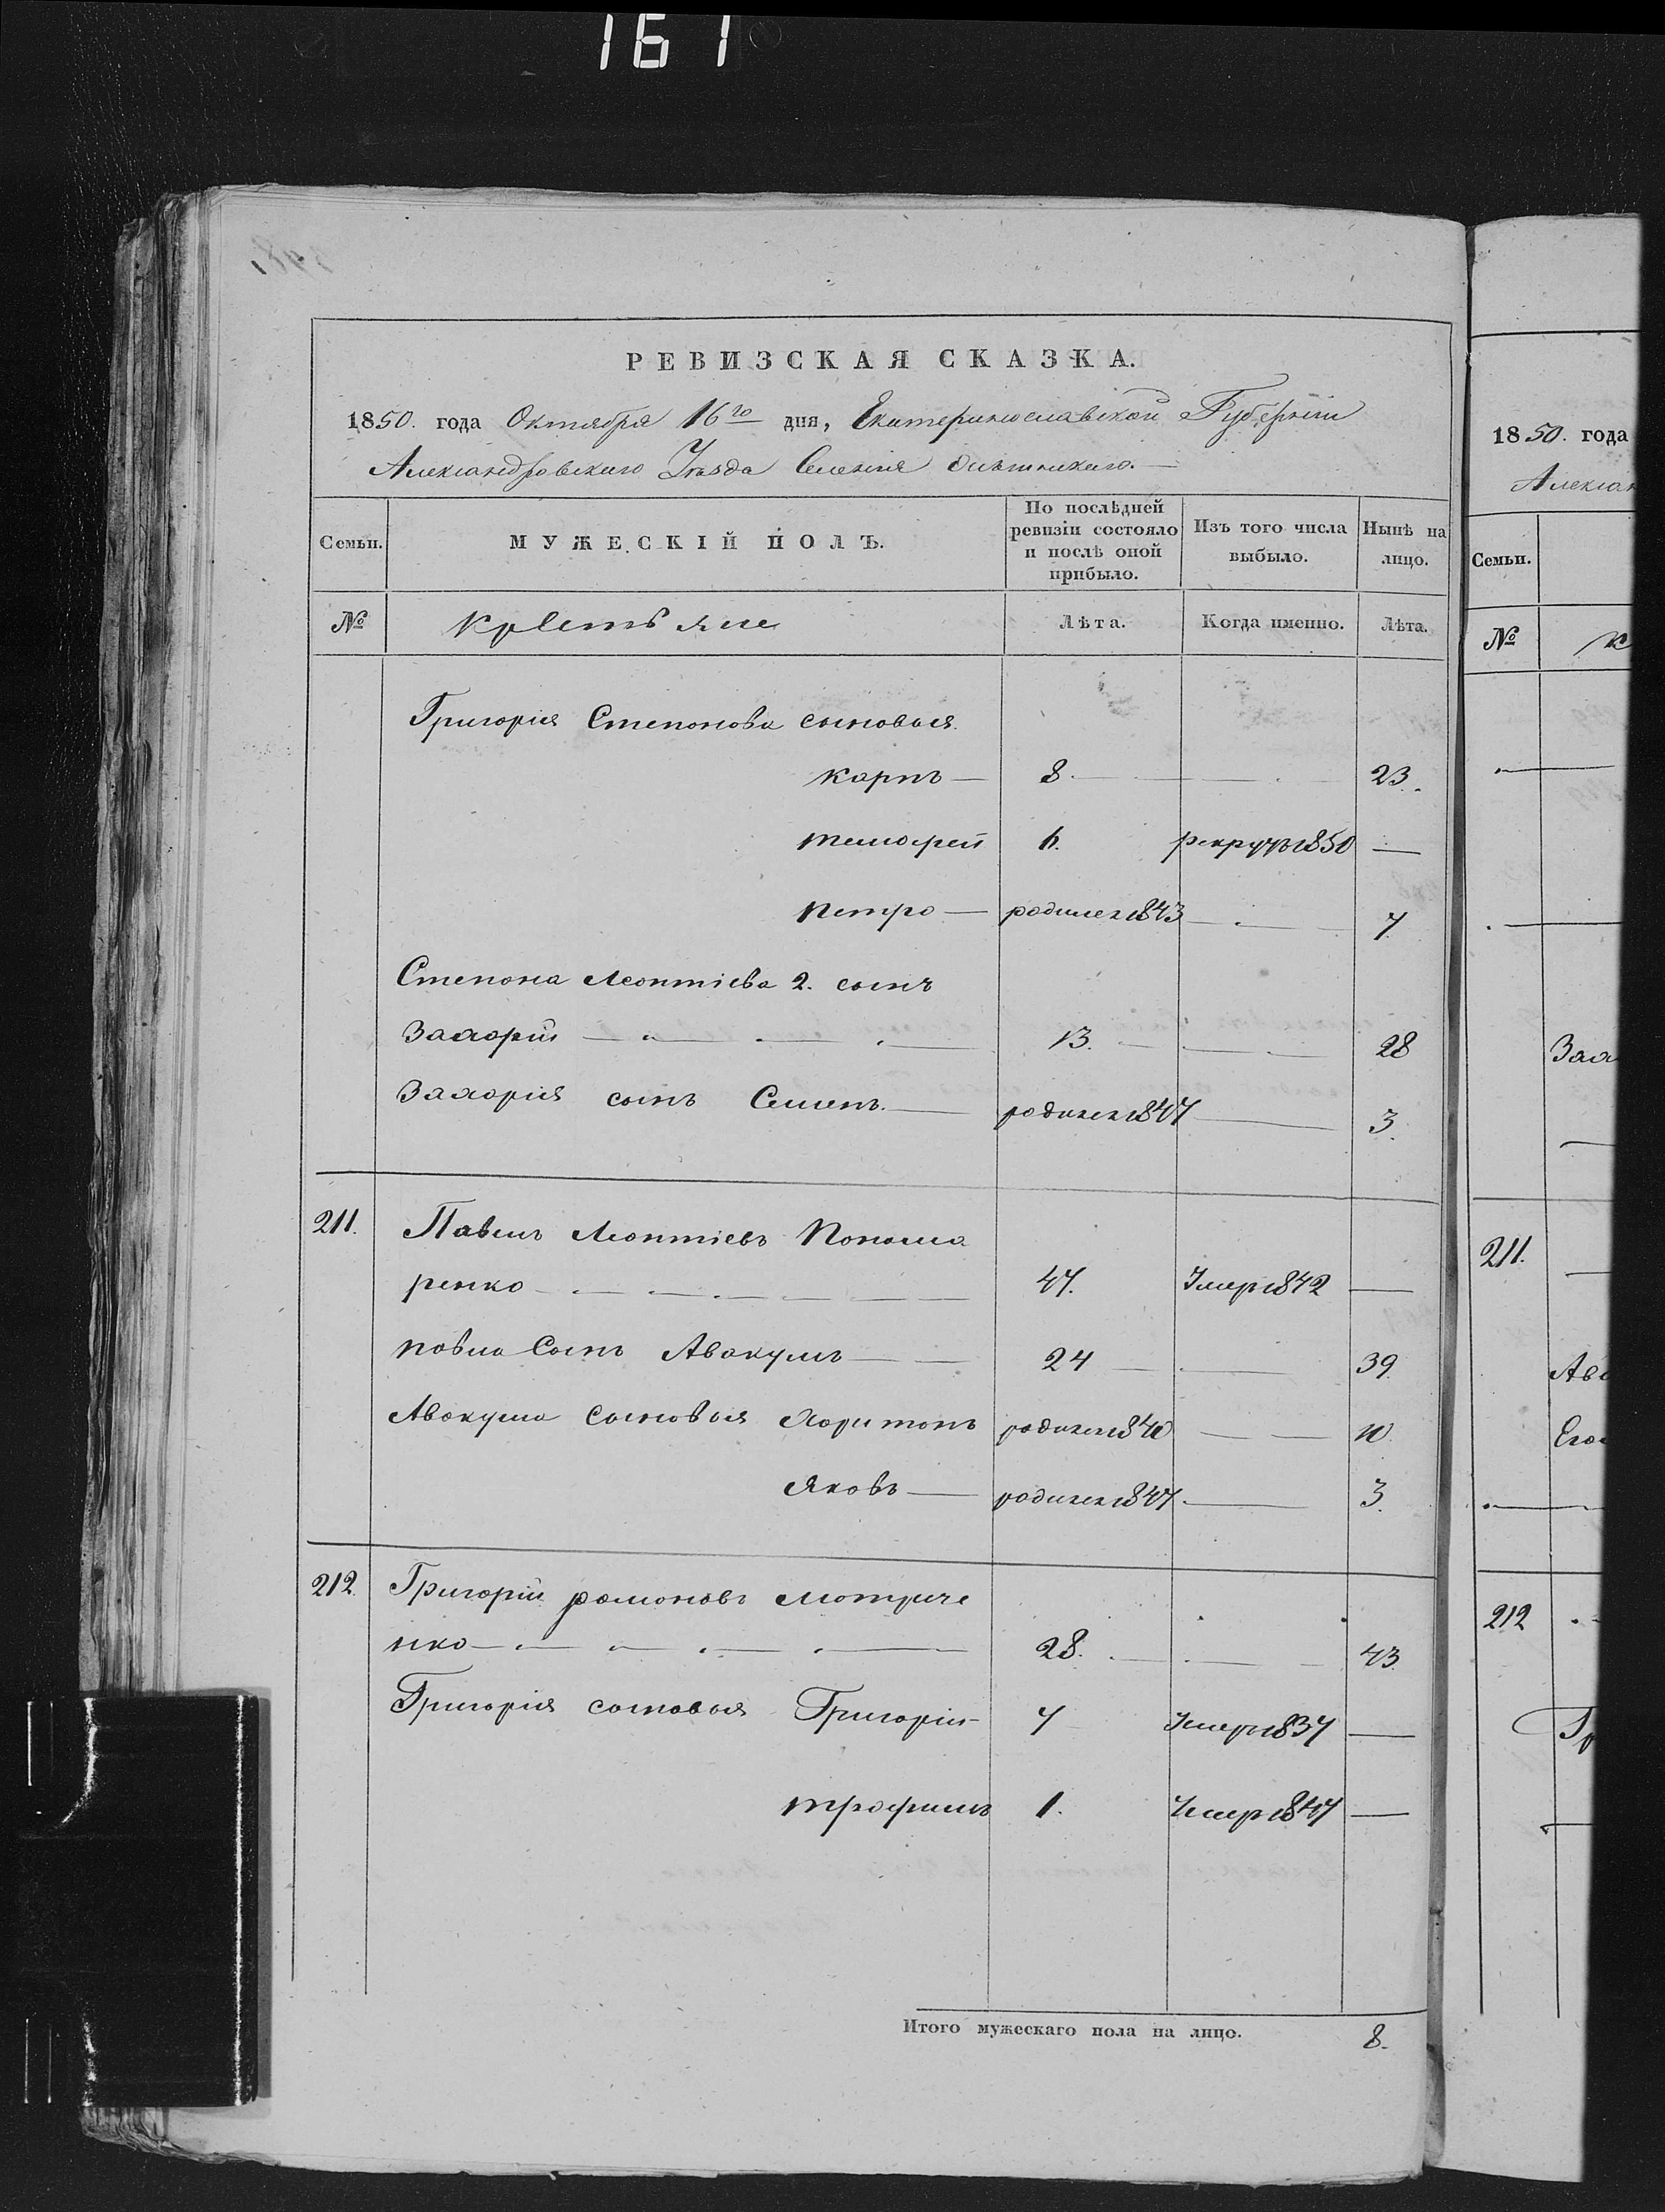 161
РЕВИЗСКАЯ СКАЗКА.
1850. года Октября 16го дня, Екатеринославской Губерніи
Александровскаго Уѣзда Селенія
Семьи.
МУЖЕСКІЙ ПОЛЪ.
По послѣдней ревизіи состояло и послѣ оной прибыло.
Изъ того числа выбыло.
Нынѣ на лицо.
№ Крестьяне Лѣта. Когда именно. Лѣта.
Григорія Степонова сыновья
Карпъ — 8. — 23.
Тимофей 6. рекрутъ 1850 —
Петро — родился 1843 — 7
Степона Леонтіева 2. сынъ
Захорій — 13. — 28
Захорія сынъ Семенъ. — родился 1847 — 3.
211. Павелъ Леонтіевъ Понома
ренко — 47. Умеръ 1842 —
Повла Сынъ Авокумъ — 24 — 39
Авокума Сыновья Хоритонъ родился 1840 — 10
Яковъ — родился 1847. — 3.
212. Григорій Ромоновъ Мотриче
нко — 28. — 43
Григорія сыновья Григорій — 7 Умеръ 1837 —
Трофимъ 1. Умеръ 1847 —
Итого мужескаго пола на лицо. 8.
1850. года
Алексан
Семьи.
№ К
Зах
211.
Аво
Его
212
Гр